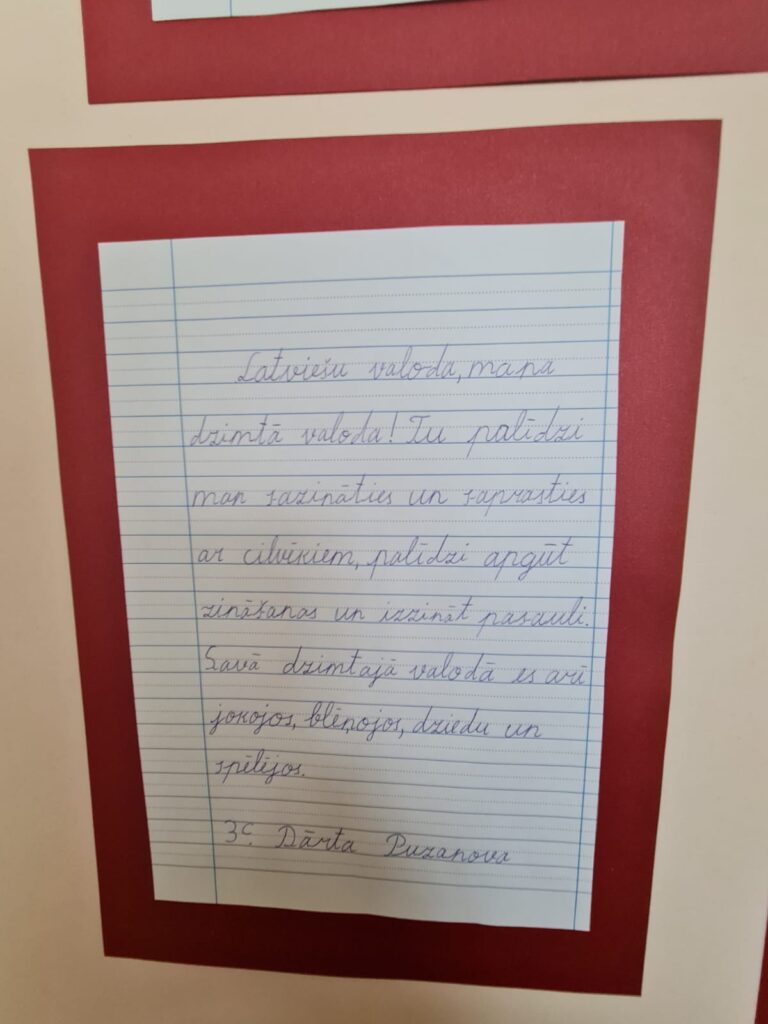 Latviešu valoda, mana
dzimtā valoda! Tu palīdzi
man sazināties un saprasties
ar cilvēkiem, palīdzi apgūt
zināšanas un izzināt pasauli.
Savā dzimtajā valodā es arī
jokojos, blēņojos, dziedu un
spēlējos.
3c. Dārta Puzanova